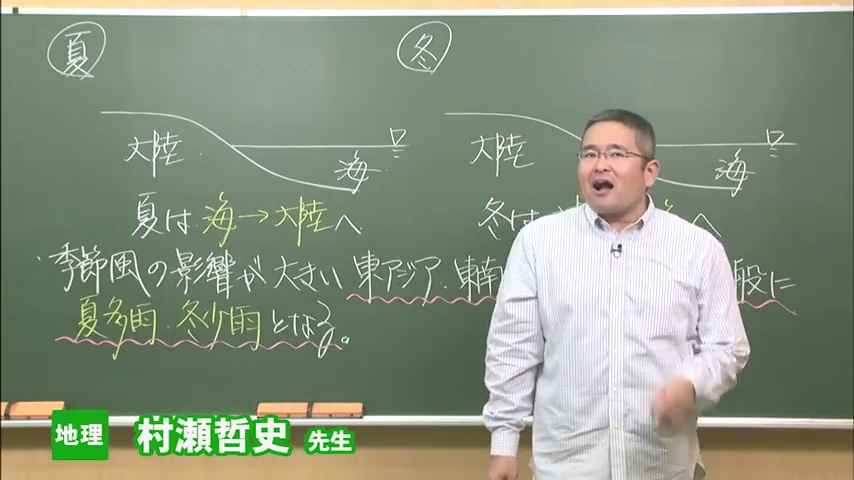 夏
冬
大陸
海
大陸
海
夏は 海→大陸へ
冬は へ
・季節風の影響が大きい東アジア・東南 般に
夏多雨・冬少雨となる。
地理 村瀬哲史 先生